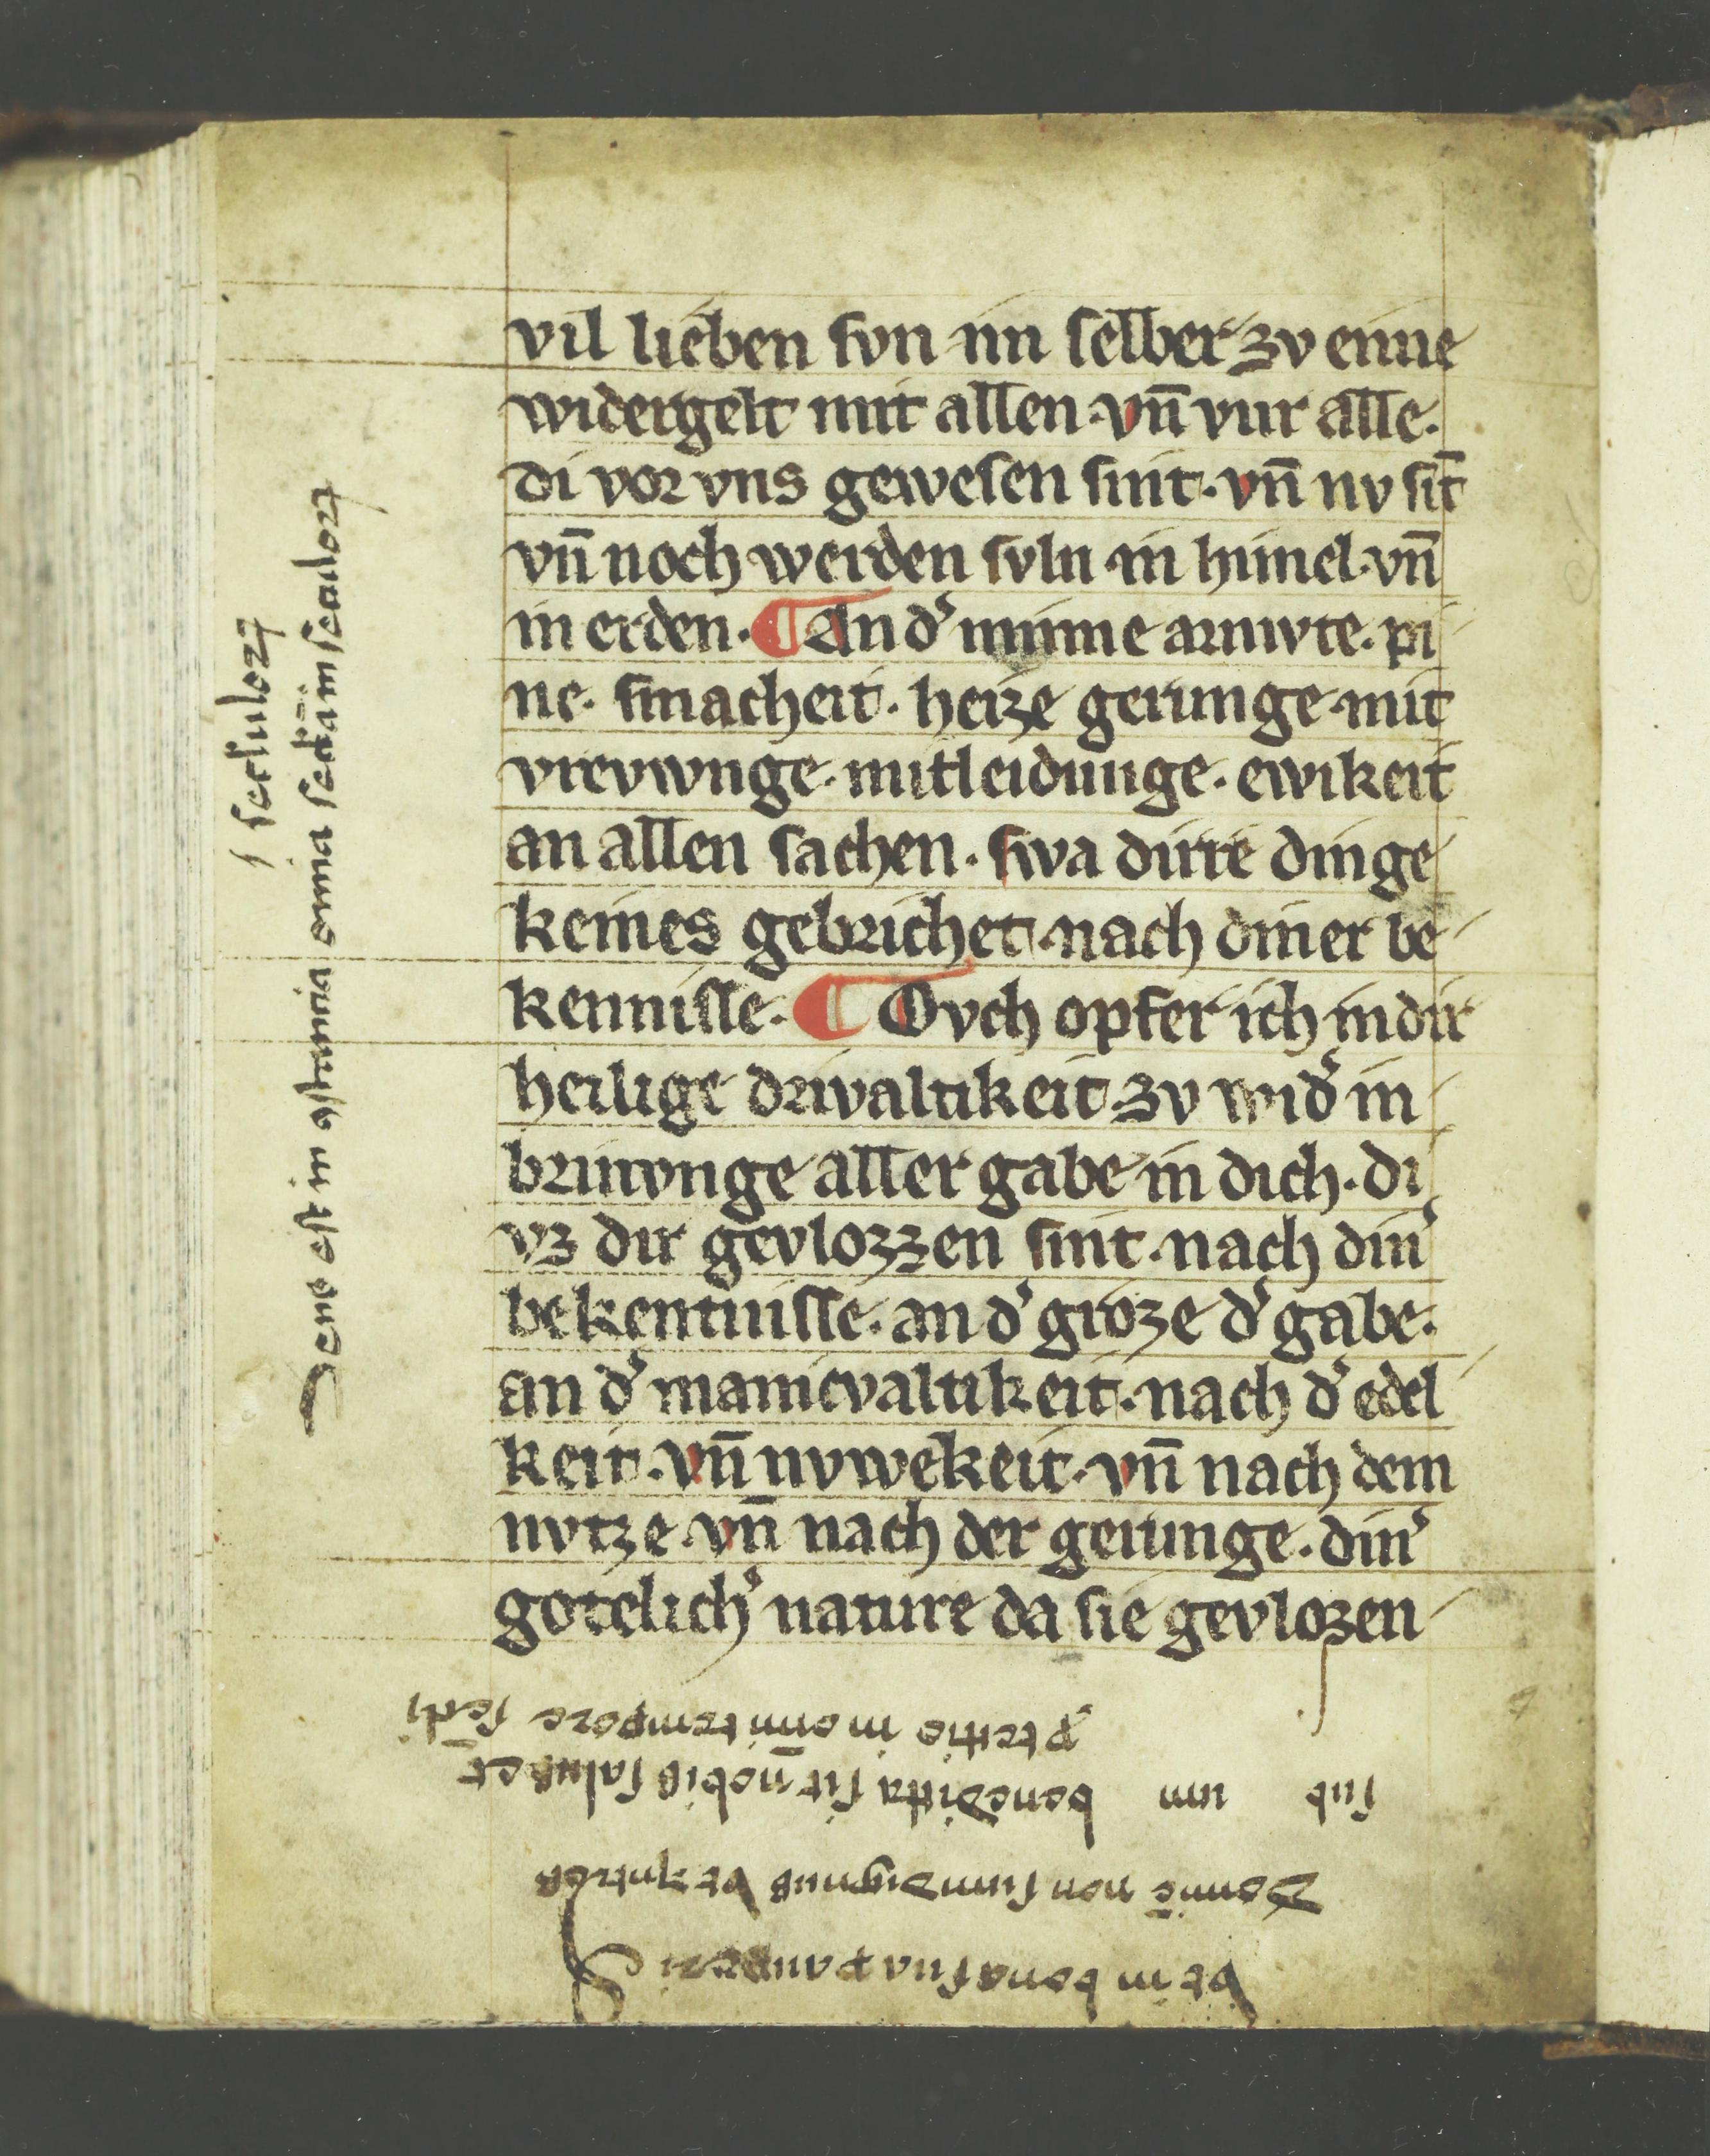 vil lieben svn im selber zv eime
widergelt mit allen. vn̄ vur alle.
di vor vns gewesen sint. vn̄ nv sīt
vn̄ noch werden svln in himel. vn̄
in erden. ¶ An d' minne armvte. pi
ne. smacheit. heize gerunge mit
vrevwnge. mitleidunge. ewikeit
an allen sachen. swa dirre dinge
keines gebrichet. nach diner be
kennisse. ¶ Ovch opfer ich in dir
heilige drivaltikeit. zv wid' in
brinvnge aller gabe in dich. di
vz dir gevlozzen sint. nach din'
bekentnisse. an d' groze d' gabe.
an d' manicvaltikeit. nach d' edel
keit. vn̄ nvwekeit. vn̄ nach dem
nvtze. vn̄ nach der gerunge. din'
gotelich' nature da sie gevlozen
Deus est in omnia
seculoꝝ
ꝓtectio in om̄i tempore
sub um benedicta sit nobis salus et
Domīe non sum dignus vt Jntres
vt in bona sua pauperi